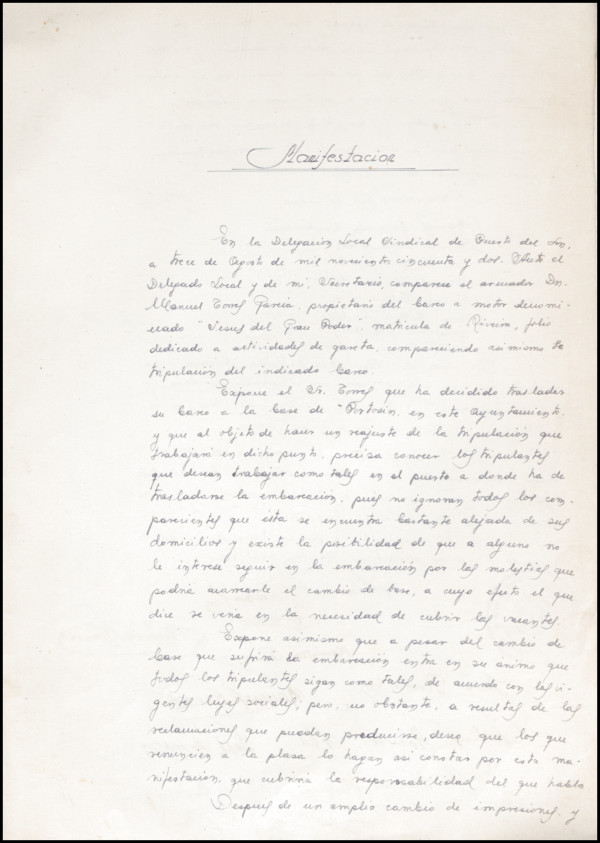 Manifestacion
En la Delegacion Local Sindical de Puerto del Son,
a trece de Agosto de mil novecientos cincuenta y dos. Ante el
Delegado Local y de mi, Secretario, comparece el armador Dn.
Manuel Torres Garcia, propietario del barco a motor denomi-
nado "Jesus del Gran Poder", matricula de Riveira, folio
dedicado a actividades de gareta, compareciendo asimismo la
tripulación del indicado barco.
Expone el Sr. Torres que ha decidido trasladar
su barco a la base de "Portosin, en este Ayuntamiento,
y que al objeto de hacer un reajuste de la tripulación que
trabajará en dicho punto, precisa conocer los tripulantes
que desean trabajar como tales en el puerto a donde ha de
trasladarse la embarcación, pues no ignoran todos los com-
parecientes que ésta se encuentra bastante alejada de sus
domicilios y existe la posibilidad de que a alguno no
le interese seguir en la embarcación por las molestias que
podría acarrearle el cambio de base, a cuyo efecto el que
dice se vería en la necesidad de cubrir las vacantes.
Expone asimismo que a pesar del cambio de
base que sufrirá la embarcación entra en su animo que
todos los tripulantes sigan como tales, de acuerdo con las vi-
gentes leyes sociales; pero, no obstante, a resultas de las
reclamaciones que puedan producirse, desea que los que
renuncien a la plaza lo hagan asi constar por esta ma-
nifestación, que cubrirá la responsabilidad del que habla
Despues de un amplio cambio de impresiones, y